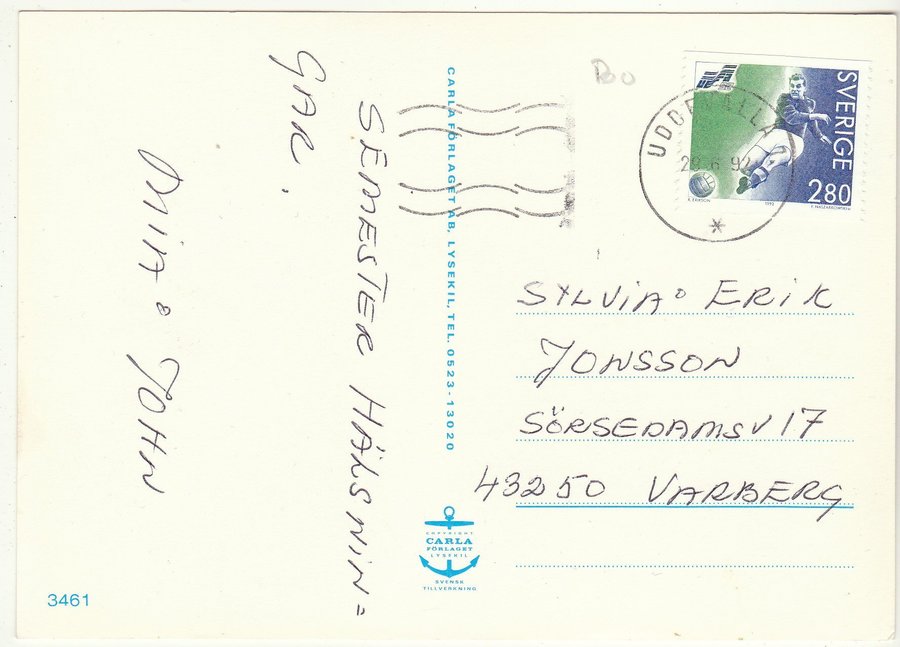 SEMESTER HÄLSNIN=
GAR.
MIA o JOHN
CARLA FÖRLAGET AB, LYSEKIL, TEL. 0523-13020
SVERIGE
2.80
1992
UDDEVALLA
6 92
*
SYLVIA o ERIK
JONSSON
SÖRSEDAMSV 17
43250 VARBERG
COPYRIGHT
CARLA
FÖRLAGET
LYSEKIL
SVENSK
TILLVERKNING
3461